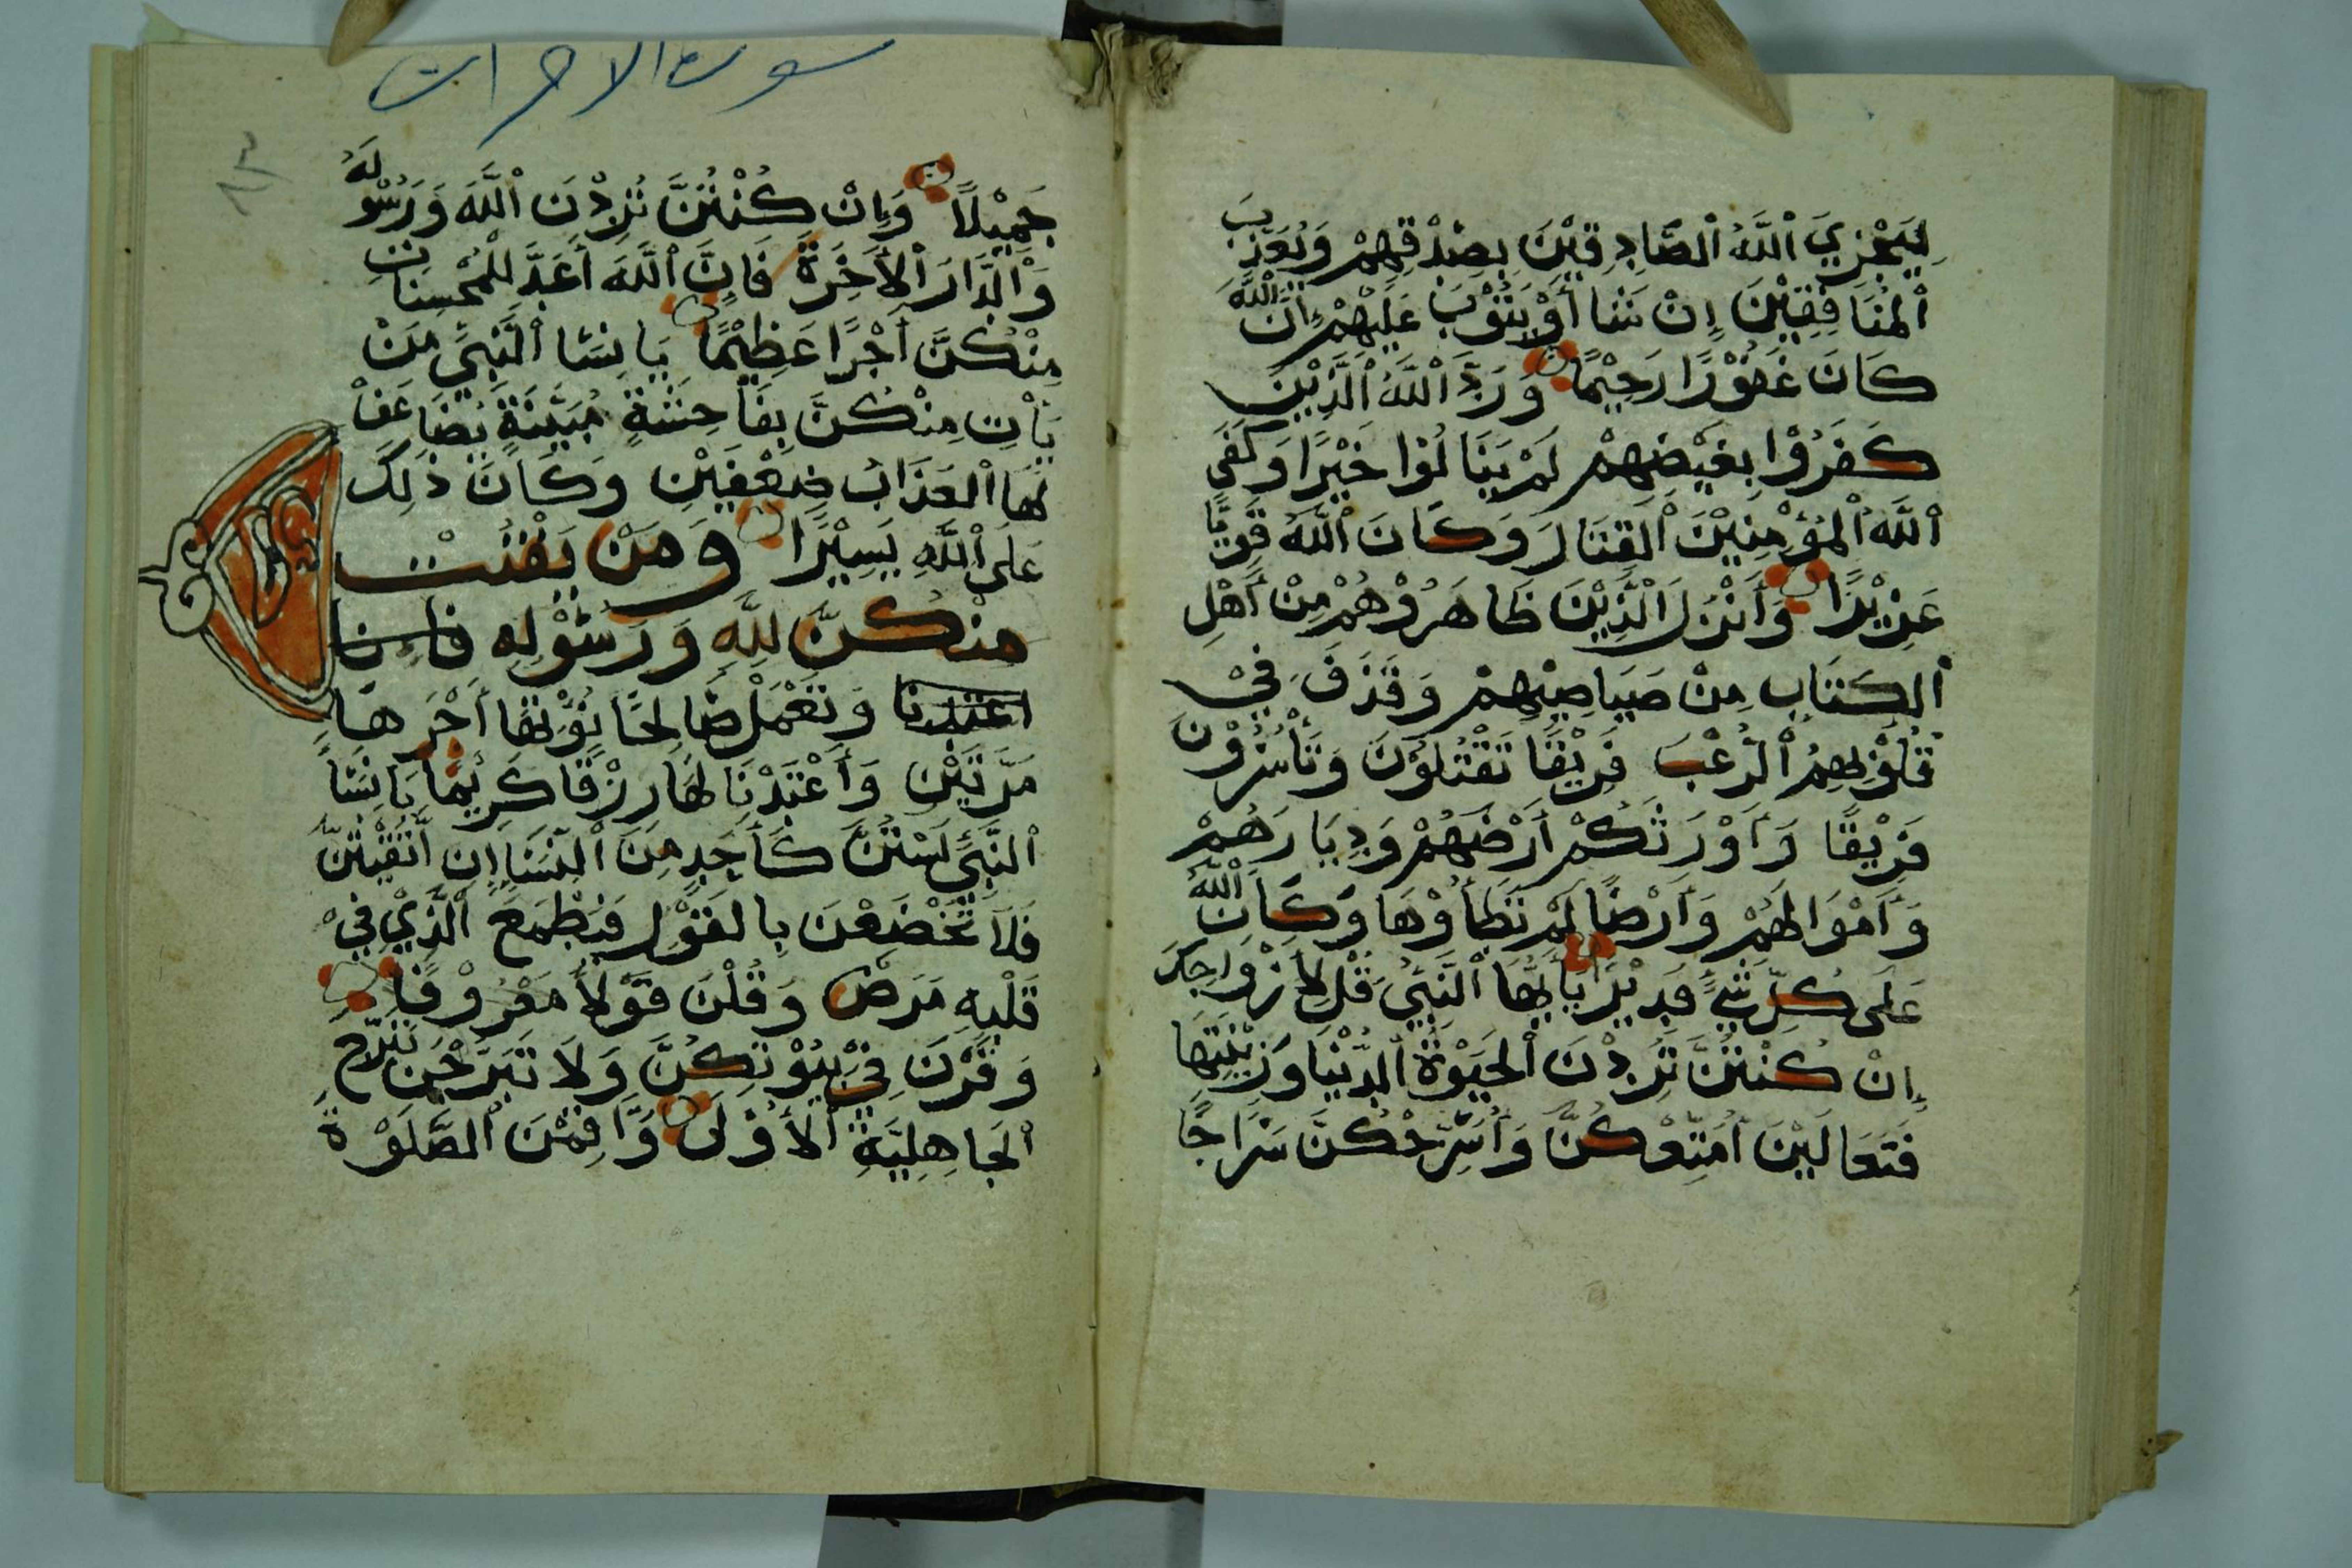 لِيَجْزِيَ ٱللَّهُ ٱلصَّادِقِيْنَ بِصِدْقِهِمْ وَيُعَذِّبَ
ٱلْمُنَافِقِيْنَ إِنْ شَا أَوْيَتُوْبَ عَلَيْهِمْ إِنَّ ٱللَّهَ
كَانَ غَفُوْرًا رَحِيْمًا وَرَدَّ ٱللَّهُ ٱلَّذِيْنَ
كَفَرُوْا بِغَيْضِهِمْ لَمْ يَنَالُوْا خَيْرًا وَكَفَى
ٱللَّهُ ٱلْمُؤْمِنِيْنَ ٱلْقِتَالَ وَكَانَ ٱللَّهُ قَوِيًّا
عَزِيْزًا وَأَنْزَلَ ٱلَّذِيْنَ ظَاهَرُوْهُمْ مِنْ أَهْلِ
ٱلْكِتَابِ مِنْ صَيَاصِيْهِمْ وَقَذَفَ فِيْ
قُلُوْبِهِمُ ٱلرُّعْبَ فَرِيْقًا تَقْتُلُوْنَ وَتَأْسُرُوْنَ
فَرِيْقًا وَأَوْرَثَكُمْ أَرْضَهُمْ وَدِيَارَهُمْ
وَأَمْوَالَهُمْ وَأَرْضًا لَمْ تَطَأُوْهَا وَكَانَ ٱللَّهُ
عَلَى كُلِّ شَيْءٍ قَدِيْرًا يَاأَيُّهَا ٱلنَّبِيُّ قُلْ لِأَزْوَاجِكَ
إِنْ كُنْتُنَّ تُرِدْنَ ٱلْحَيَوٰةَ ٱلدُّنْيَا وَزِيْنَتَهَا
فَتَعَالَيْنَ أُمَتِّعْكُنَّ وَأُسَرِّحْكُنَّ سَرَاحًا
سورة الاحزاب
جَمِيْلًا وَإِنْ كُنْتُنَّ تُرِدْنَ ٱللَّهَ وَرَسُوْلَهُ
وَٱلدَّارَ ٱلْأَخِرَةَ فَإِنَّ ٱللَّهَ أَعَدَّ لِلْمُحْسِنَاتِ
مِنْكُنَّ أَجْرًا عَظِيْمًا يَانِسَا ٱلنَّبِيِّ مَنْ
يَأْتِ مِنْكُنَّ بِفَاحِشَةٍ مُبَيِّنَةٍ يُضَاعَفْ
لَهَا ٱلْعَذَابُ ضِعْفَيْنِ وَكَانَ ذٰلِكَ
عَلَى ٱللَّهِ يَسِيْرًا وَمَنْ يَقْنُتْ
مِنْكُنَّ لِلَّهِ وَرَسُوْلِهِ فَإِنَّا
اعتدنا وَتَعْمَلْ صَالِحًا نُؤْتِهَا أَجْرَهَا
مَرَّتَيْنِ وَأَعْتَدْنَا لَهَا رِزْقًا كَرِيْمًا يَانِسَا
ٱلنَّبِيِّ لَسْتُنَّ كَأَحَدٍ مِنَ ٱلنِّسَا إِنِ ٱتَّقَيْتُنَّ
فَلَا تَخْضَعْنَ بِالْقَوْلِ فَيَطْمَعَ ٱلَّذِيْ فِيْ
قَلْبِهِ مَرَضٌ وَقُلْنَ قَوْلاً مَعْرُوْفًا
وَقَرْنَ فِيْ بُيُوْتِكُنَّ وَلَا تَبَرَّجْنَ تَبَرُّجَ
ٱلْجَاهِلِيَّةِ ٱلْأُوْلَى وَأَقِمْنَ ٱلصَّلَوٰةَ